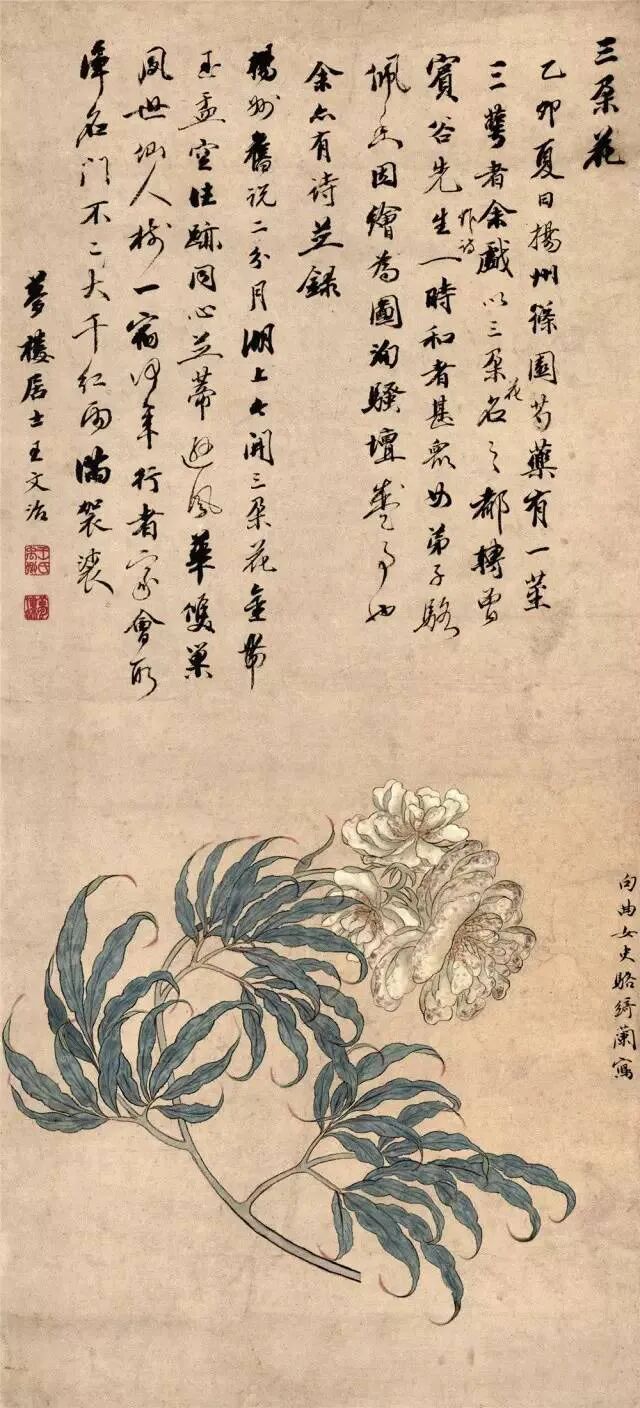 三朵花
乙卯夏日揚州篠園芍藥有一莖
三萼者余戲以三朵花名之都轉曾
賓谷先生作詩一時和者甚眾女弟子駱
佩香因繪為圖洵騷壇盛事也
余亦有詩並錄
揚州舊說二分月湖上今開三朵花金帶
玉盃空往跡同心並蒂遜風華雙巢
夙世仙人樹一宿何年行者家會取
渾名門不二大千紅雨滿袈裟
夢樓居士王文治
句曲女史駱綺蘭寫